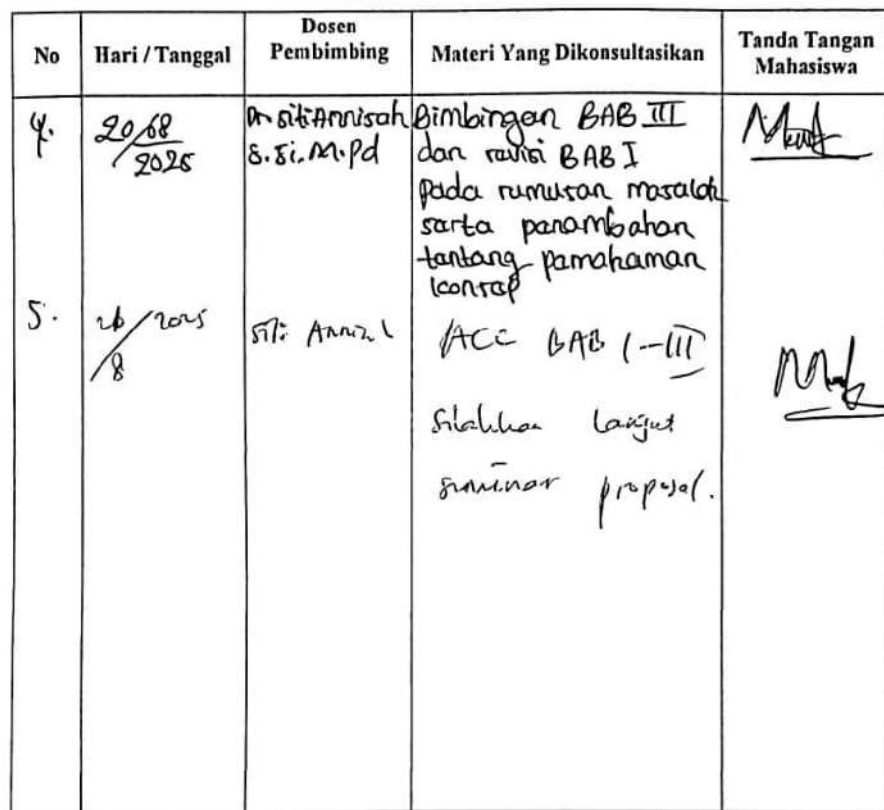 No
Hari / Tanggal
Dosen
Pembimbing
Materi Yang Dikonsultasikan
Tanda Tangan
Mahasiswa
4.
20/08
2025
Dr. Siti Annisah
S.Si. M.Pd
Bimbingan BAB III
dan revisi BAB I
pada rumusan masalah
serta penambahan
tentang pemahaman
konsep
5.
26/2025
8
Siti Annisah
ACC BAB I-III
Silahkan lanjut
seminar proposal.